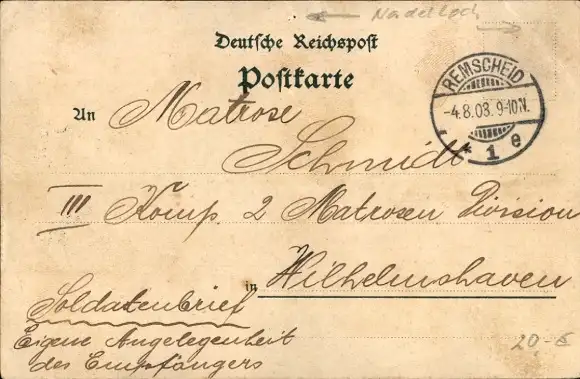 ← Nadelloch →
Deutsche Reichspost
Postkarte
REMSCHEID
-4.8.03. 9-10N.
* 1 e
An Matrose
Schmidt
III Komp. 2 Matrosen Division
in Wilhelmshaven
Soldatenbrief
Eigene Angelegenheit
des Empfängers
20,-€